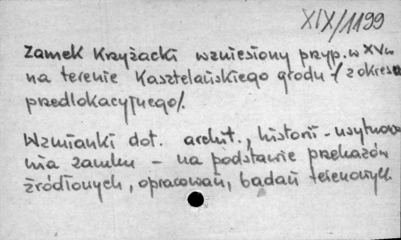 XIX/1199
Zamek Krzyżacki wzniesiony przyp. w XVw
na terenie Kasztelańskiego grodu /z okresu
przedlokacyjnego/.
Wzmianki dot. archit., historii - usytuowa
nia zamku - na podstawie przekazów
źródłowych, opracowań, badań terenowych